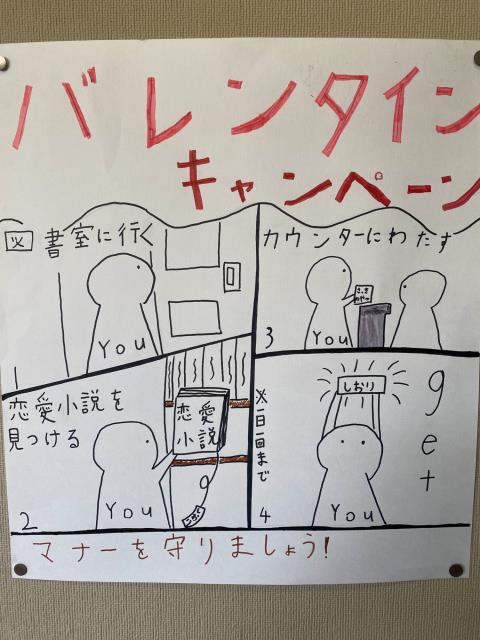 バレンタイン
キャンペーン
図書室に行く
You
1
恋愛小説を
見つける
恋愛
小説
You
2
カウンターにわたす
さっき
のやつ
You
3
しおり
get
※一日一回まで
You
4
マナーを守りましょう!